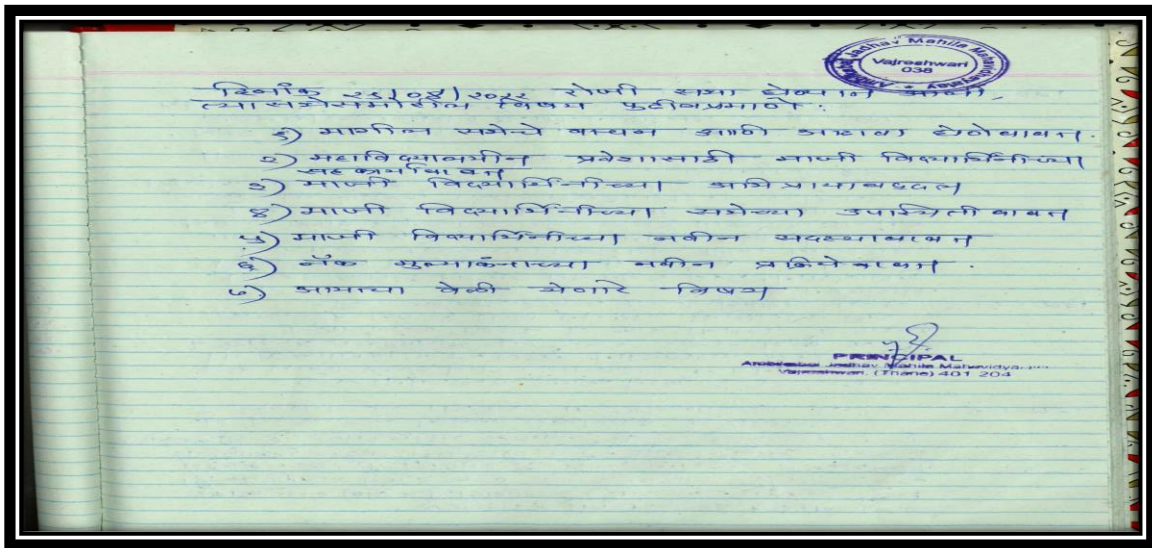 Jadhav Mahila Mahavidyalay
Vajreshwari
038
दिनांक २३/०४/२०२२ रोजी सभा घेण्यात आली,
त्यासभेसमोरील विषय पुढीलप्रमाणे :
१) मागील सभेचे वाचन आणी आढावा घेणेबाबत.
२) महाविद्यालयीन प्रवेशासाठी माजी विद्यार्थिनींच्या
सहकार्याबाबत
३) माजी विद्यार्थिनींच्या अभिप्रायाबद्दल
४) माजी विद्यार्थिनींच्या सभेच्या उपस्थिती बाबत
५) माजी विद्यार्थिनींच्या नवीन सदस्याबाबत
६) नॅक मुल्यांकनाच्या नवीन प्रक्रियेबाबत.
७) आयत्या वेळी येणारे विषय
PRINCIPAL
Jadhav Mahila Mahavidya
Vajreshwari, (Thane) 401 204